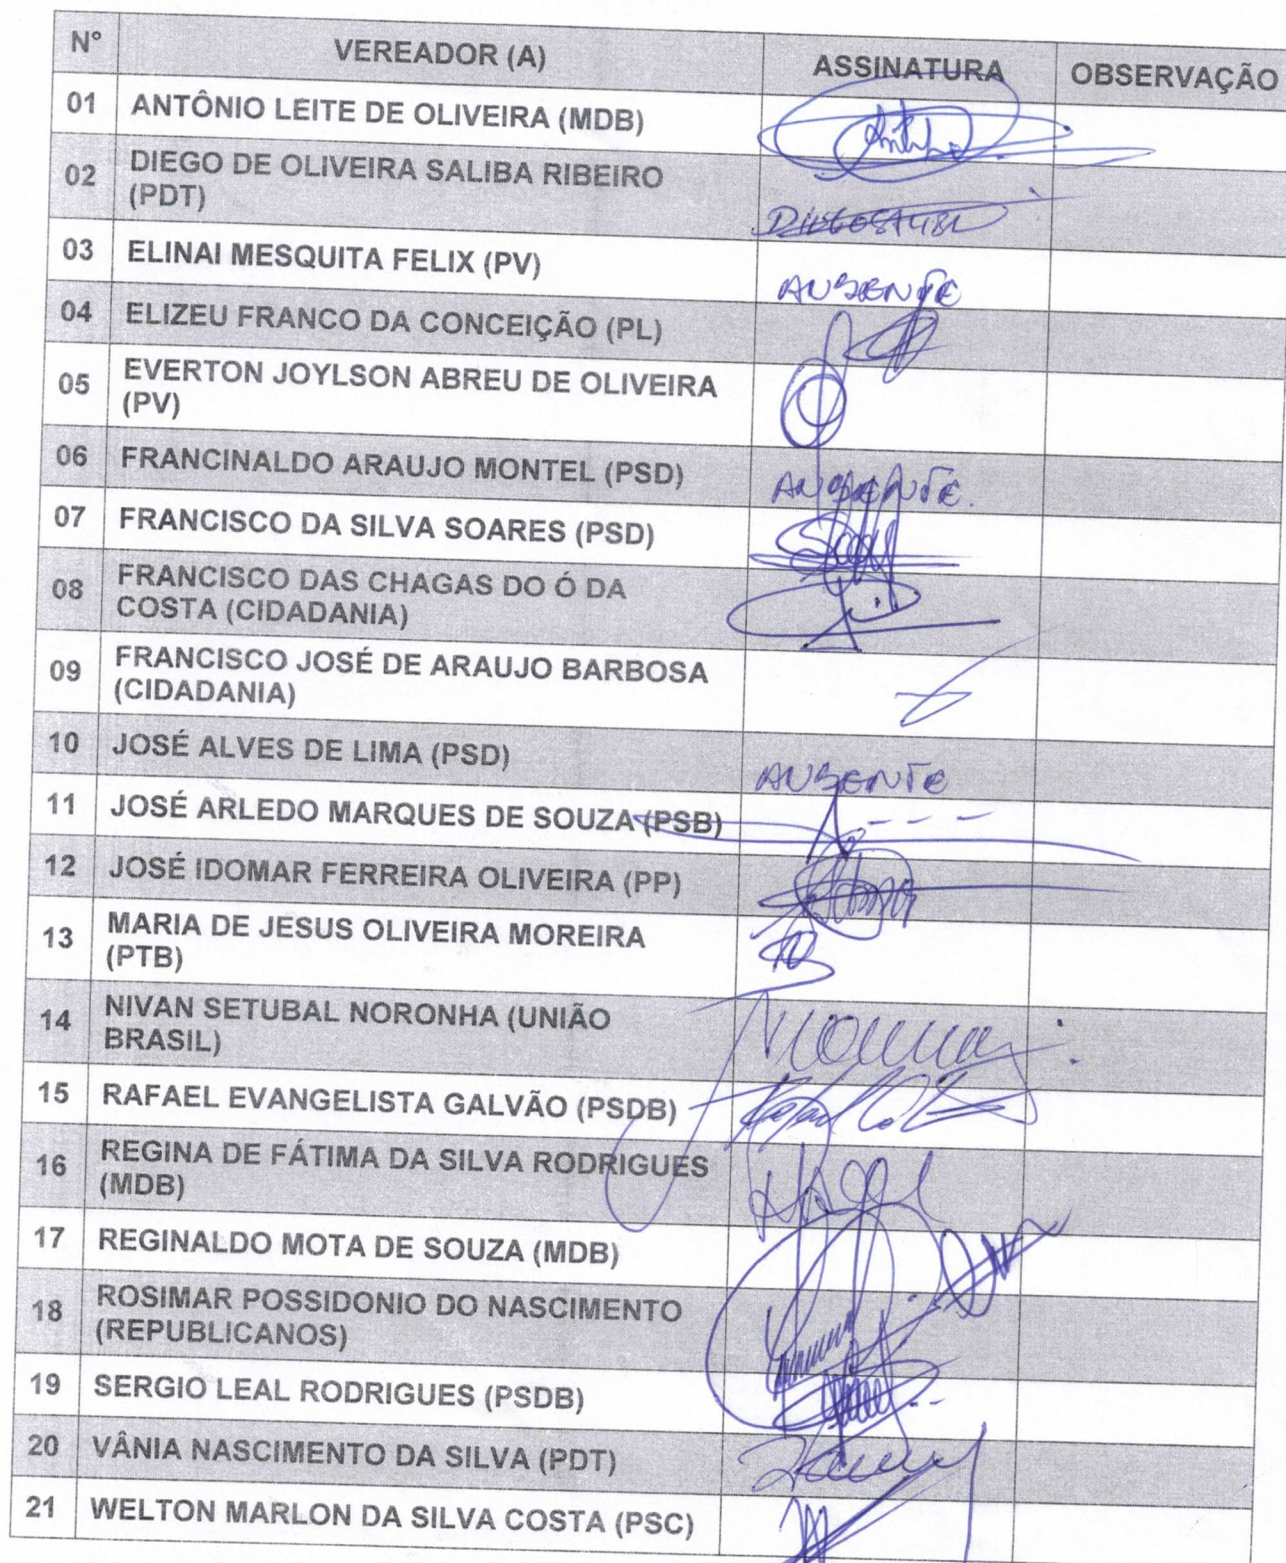 N° VEREADOR (A) ASSINATURA OBSERVAÇÃO
01 ANTÔNIO LEITE DE OLIVEIRA (MDB)
02 DIEGO DE OLIVEIRA SALIBA RIBEIRO
(PDT)
03 ELINAI MESQUITA FELIX (PV) AUSENTE
04 ELIZEU FRANCO DA CONCEIÇÃO (PL)
05 EVERTON JOYLSON ABREU DE OLIVEIRA
(PV)
06 FRANCINALDO ARAUJO MONTEL (PSD) AUSENTE.
07 FRANCISCO DA SILVA SOARES (PSD)
08 FRANCISCO DAS CHAGAS DO Ó DA
COSTA (CIDADANIA)
09 FRANCISCO JOSÉ DE ARAUJO BARBOSA
(CIDADANIA)
10 JOSÉ ALVES DE LIMA (PSD) AUSENTE
11 JOSÉ ARLEDO MARQUES DE SOUZA (PSB)
12 JOSÉ IDOMAR FERREIRA OLIVEIRA (PP)
13 MARIA DE JESUS OLIVEIRA MOREIRA
(PTB)
14 NIVAN SETUBAL NORONHA (UNIÃO
BRASIL)
15 RAFAEL EVANGELISTA GALVÃO (PSDB)
16 REGINA DE FÁTIMA DA SILVA RODRIGUES
(MDB)
17 REGINALDO MOTA DE SOUZA (MDB)
18 ROSIMAR POSSIDONIO DO NASCIMENTO
(REPUBLICANOS)
19 SERGIO LEAL RODRIGUES (PSDB)
20 VÂNIA NASCIMENTO DA SILVA (PDT)
21 WELTON MARLON DA SILVA COSTA (PSC)